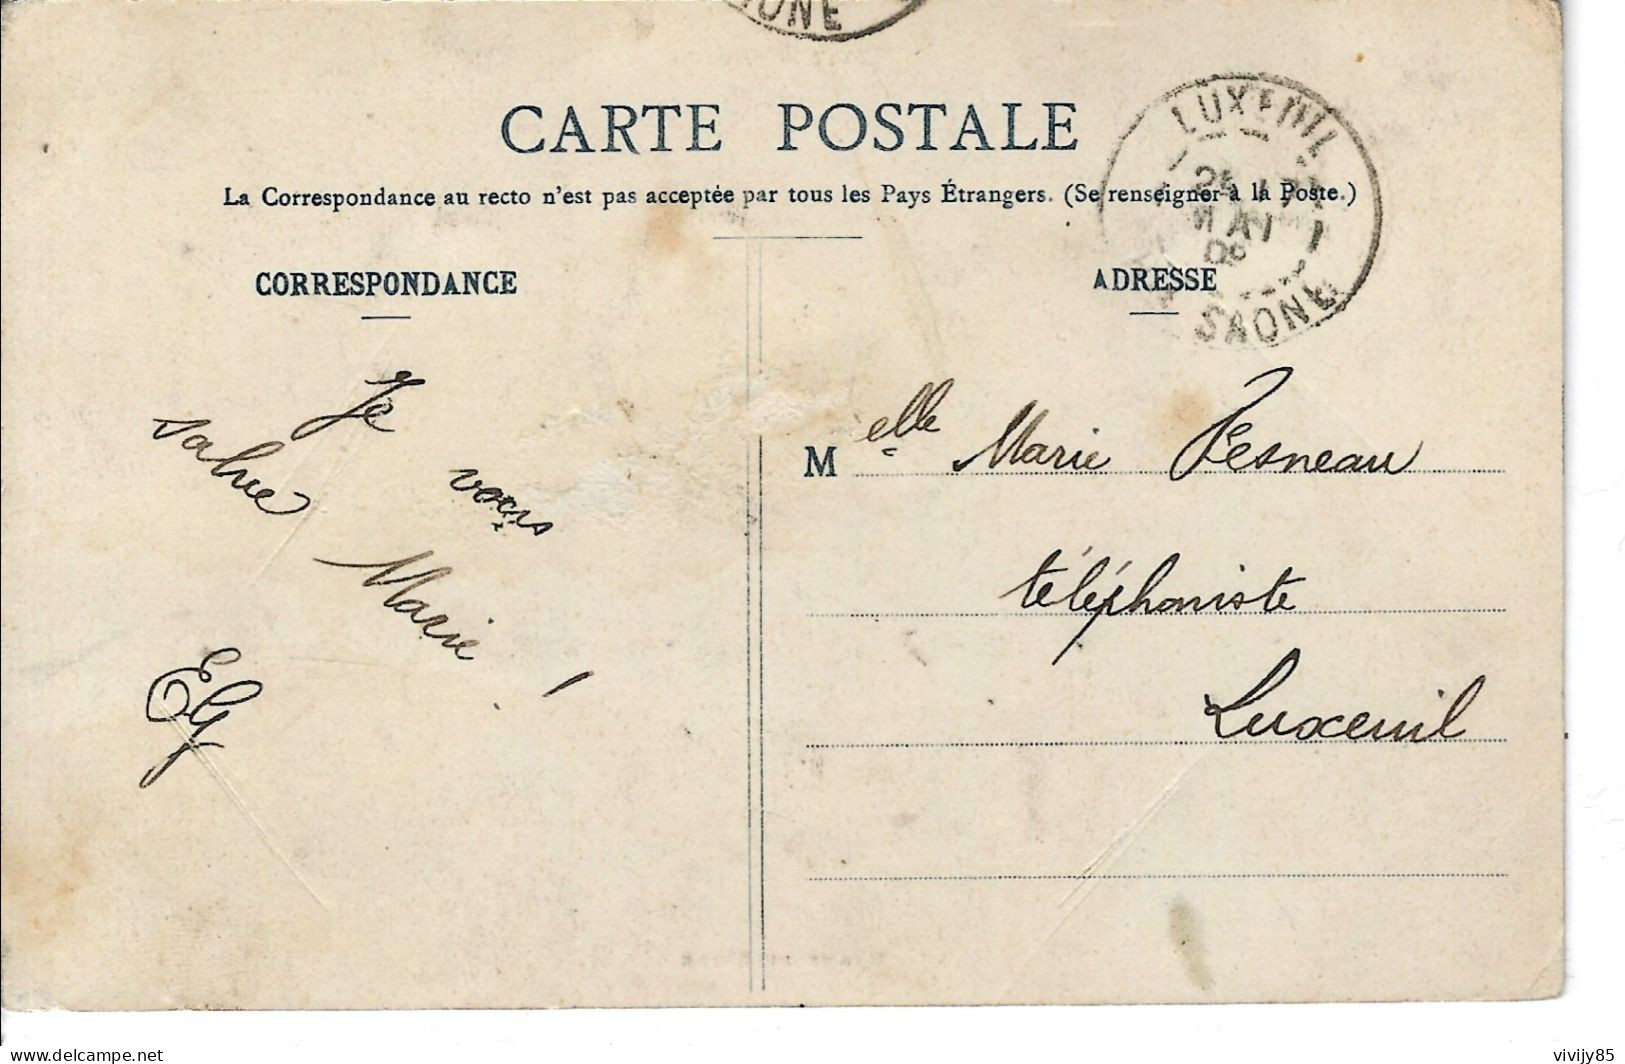 CARTE POSTALE
La Correspondance au recto n'est pas acceptée par tous les Pays Étrangers. (Se renseigner à la Poste.)
CORRESPONDANCE
Je vous
salue Marie !
EG
ADRESSE
LUXEUIL
MAI
SAONE
M elle Marie Pesneau
téléphoniste
Luxeuil
delcampe.net
vivijy85